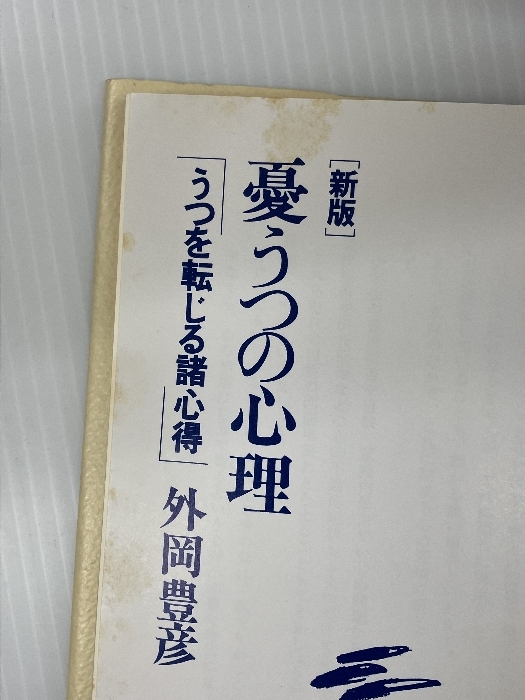 [新版]
憂うつの心理
「うつを転じる諸心得」
外岡豊彦